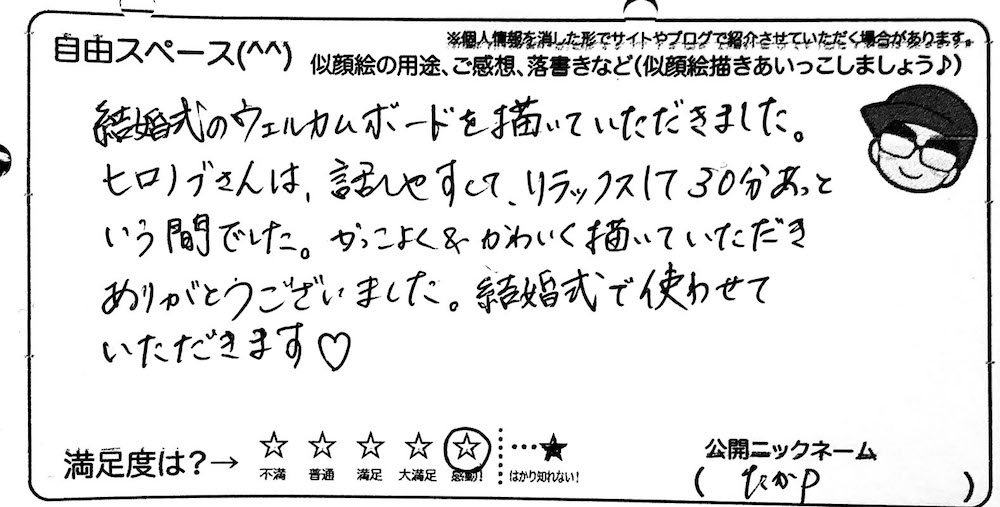 ※個人情報を消した形でサイトやブログで紹介させていただく場合があります。
自由スペース(^^) 似顔絵の用途、ご感想、落書きなど(似顔絵描きあいっこしましょう♪)
結婚式のウェルカムボードを描いていただきました。
ヒロノブさんは、話しやすくて、リラックスして30分あっと
いう間でした。かっこよく&かわいく描いていただき
ありがとうございました。結婚式で使わせて
いただきます♡
満足度は?→ ☆ ☆ ☆ ☆ ☆ …★
不満 普通 満足 大満足 感動! はかり知れない!
公開ニックネーム
( たかP )